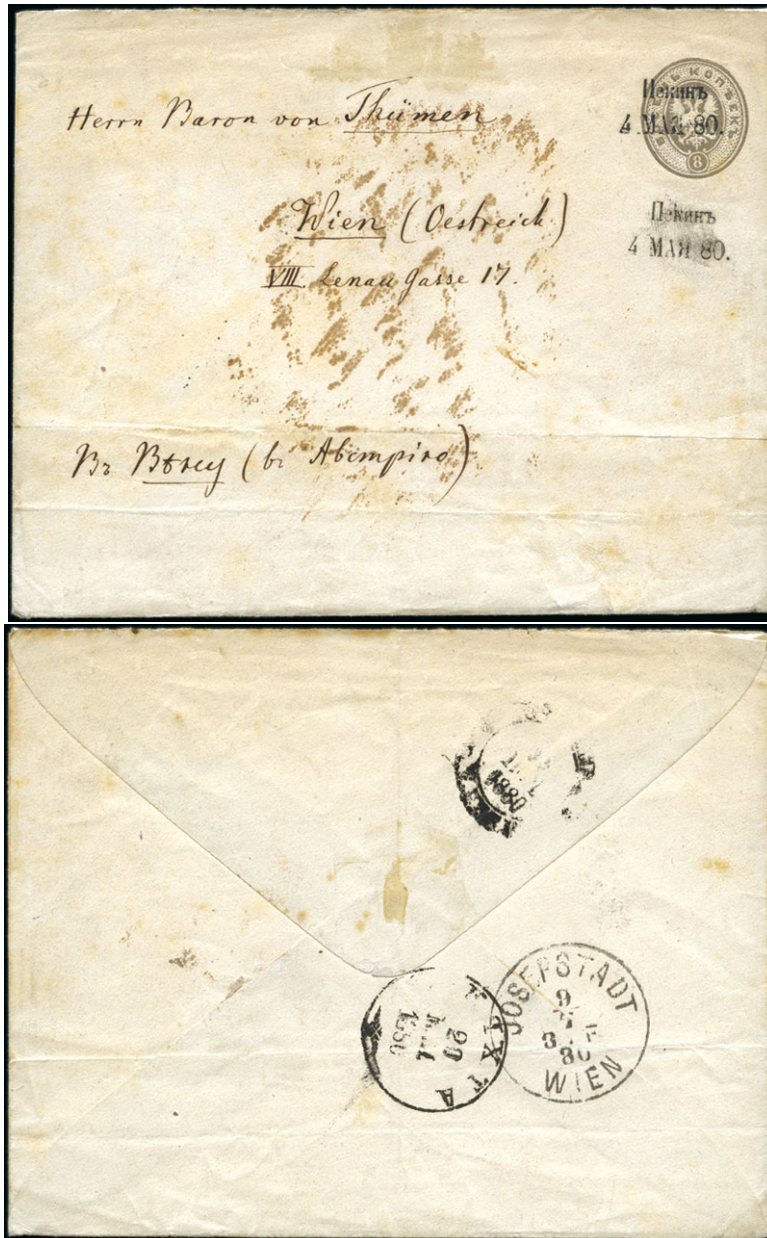 Herrn Baron von Thümen
Wien (Oestreich)
VIII. Lenau Gasse 17.
Въ Вѣну (въ Австрiю)
ВОСЕМЬ КОПѢЕКЪ
8
Пекинъ
4 МАЯ 80.
Пекинъ
4 МАЯ 80.
1880
КЯХТА
20
МАЯ
1880
JOSEFSTADT
9
80
WIEN